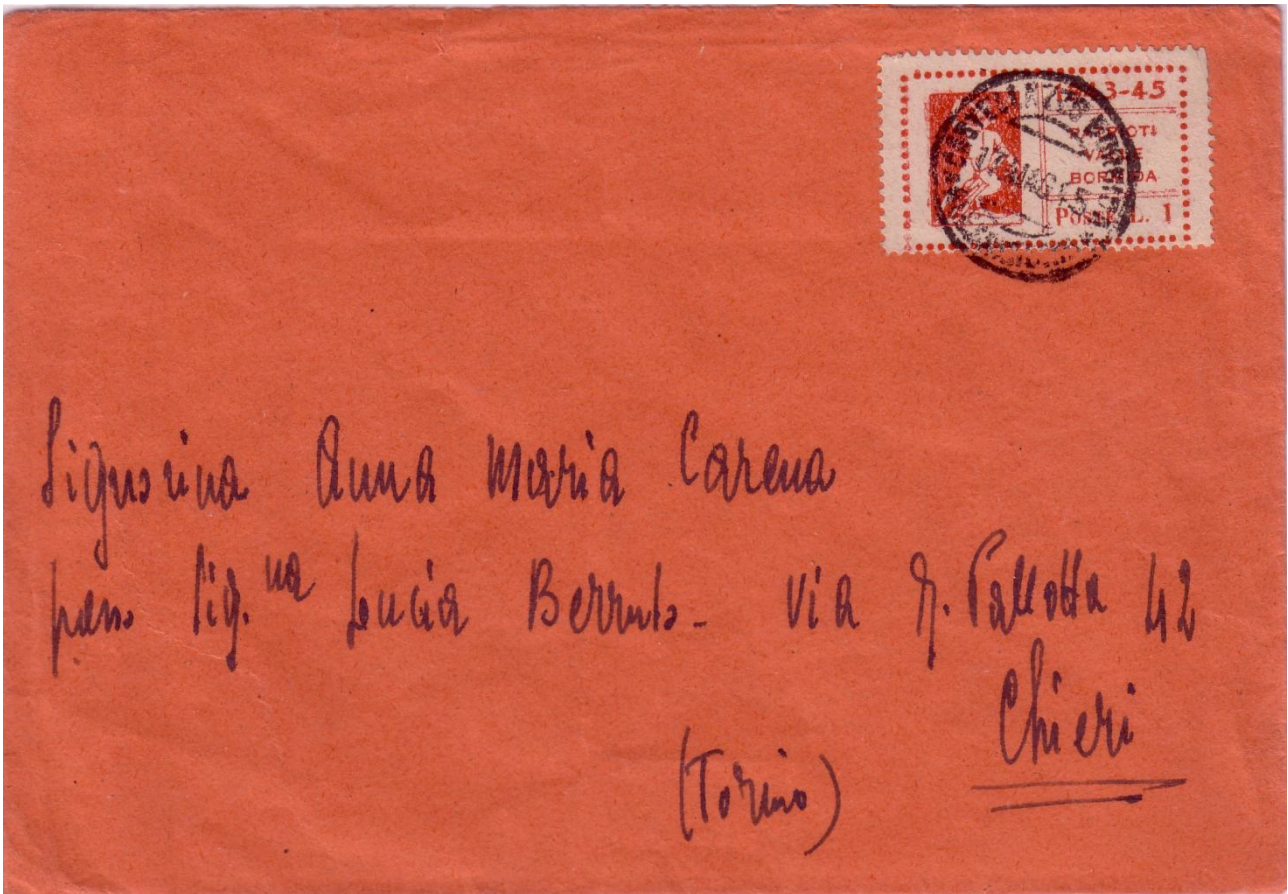 1943-45
PATRIOTI
VALLE
BORMIDA
Posta L. 1
Signorina Anna Maria Carena
presso Sig.na Lucia Berruto - Via R. Pallotta 42
Chieri
(Torino)